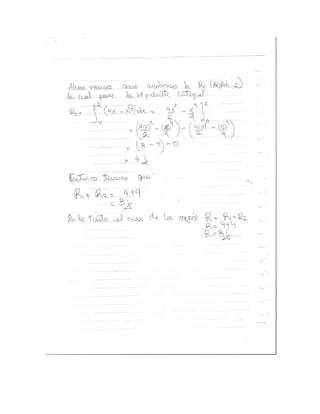 Ahora vamos a resolver la R₂ (Región 2)
la cual posee la siguiente integral:
R₂ = ∫₀² (4x - x³) dx = 4x²/2 - x⁴/4 ]₀²
= (4(2)²/2 - (2)⁴/4) - (4(0)²/2 - (0)⁴/4)
= (8 - 4) - 0
= 4
Entonces tenemos que:
R₁ + R₂ = 4+4
= 8
Por lo tanto el area de la región R = R₁+R₂
R = 4+4
R = 8